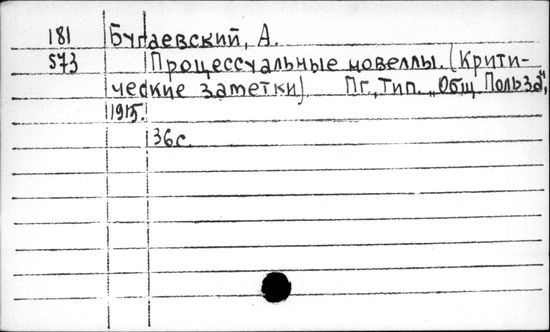 181 Бугаевский, А.
573 Процессуальные новеллы. (Крити-
ческие заметки) Пг., Тип. „Общ. Польза",
1915.
36с.